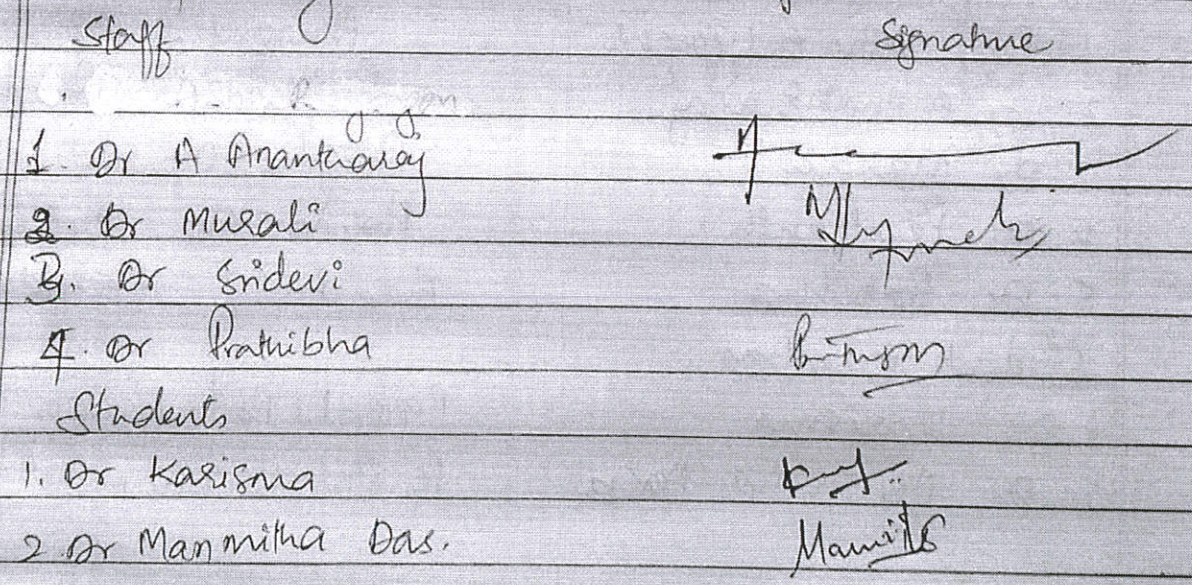 Staff Signature
1. Dr A Anantharaj
2. Dr Murali
3. Dr Sridevi
4. Dr Prathibha
Students
1. Dr Karisma
2. Dr Manmitha Das.